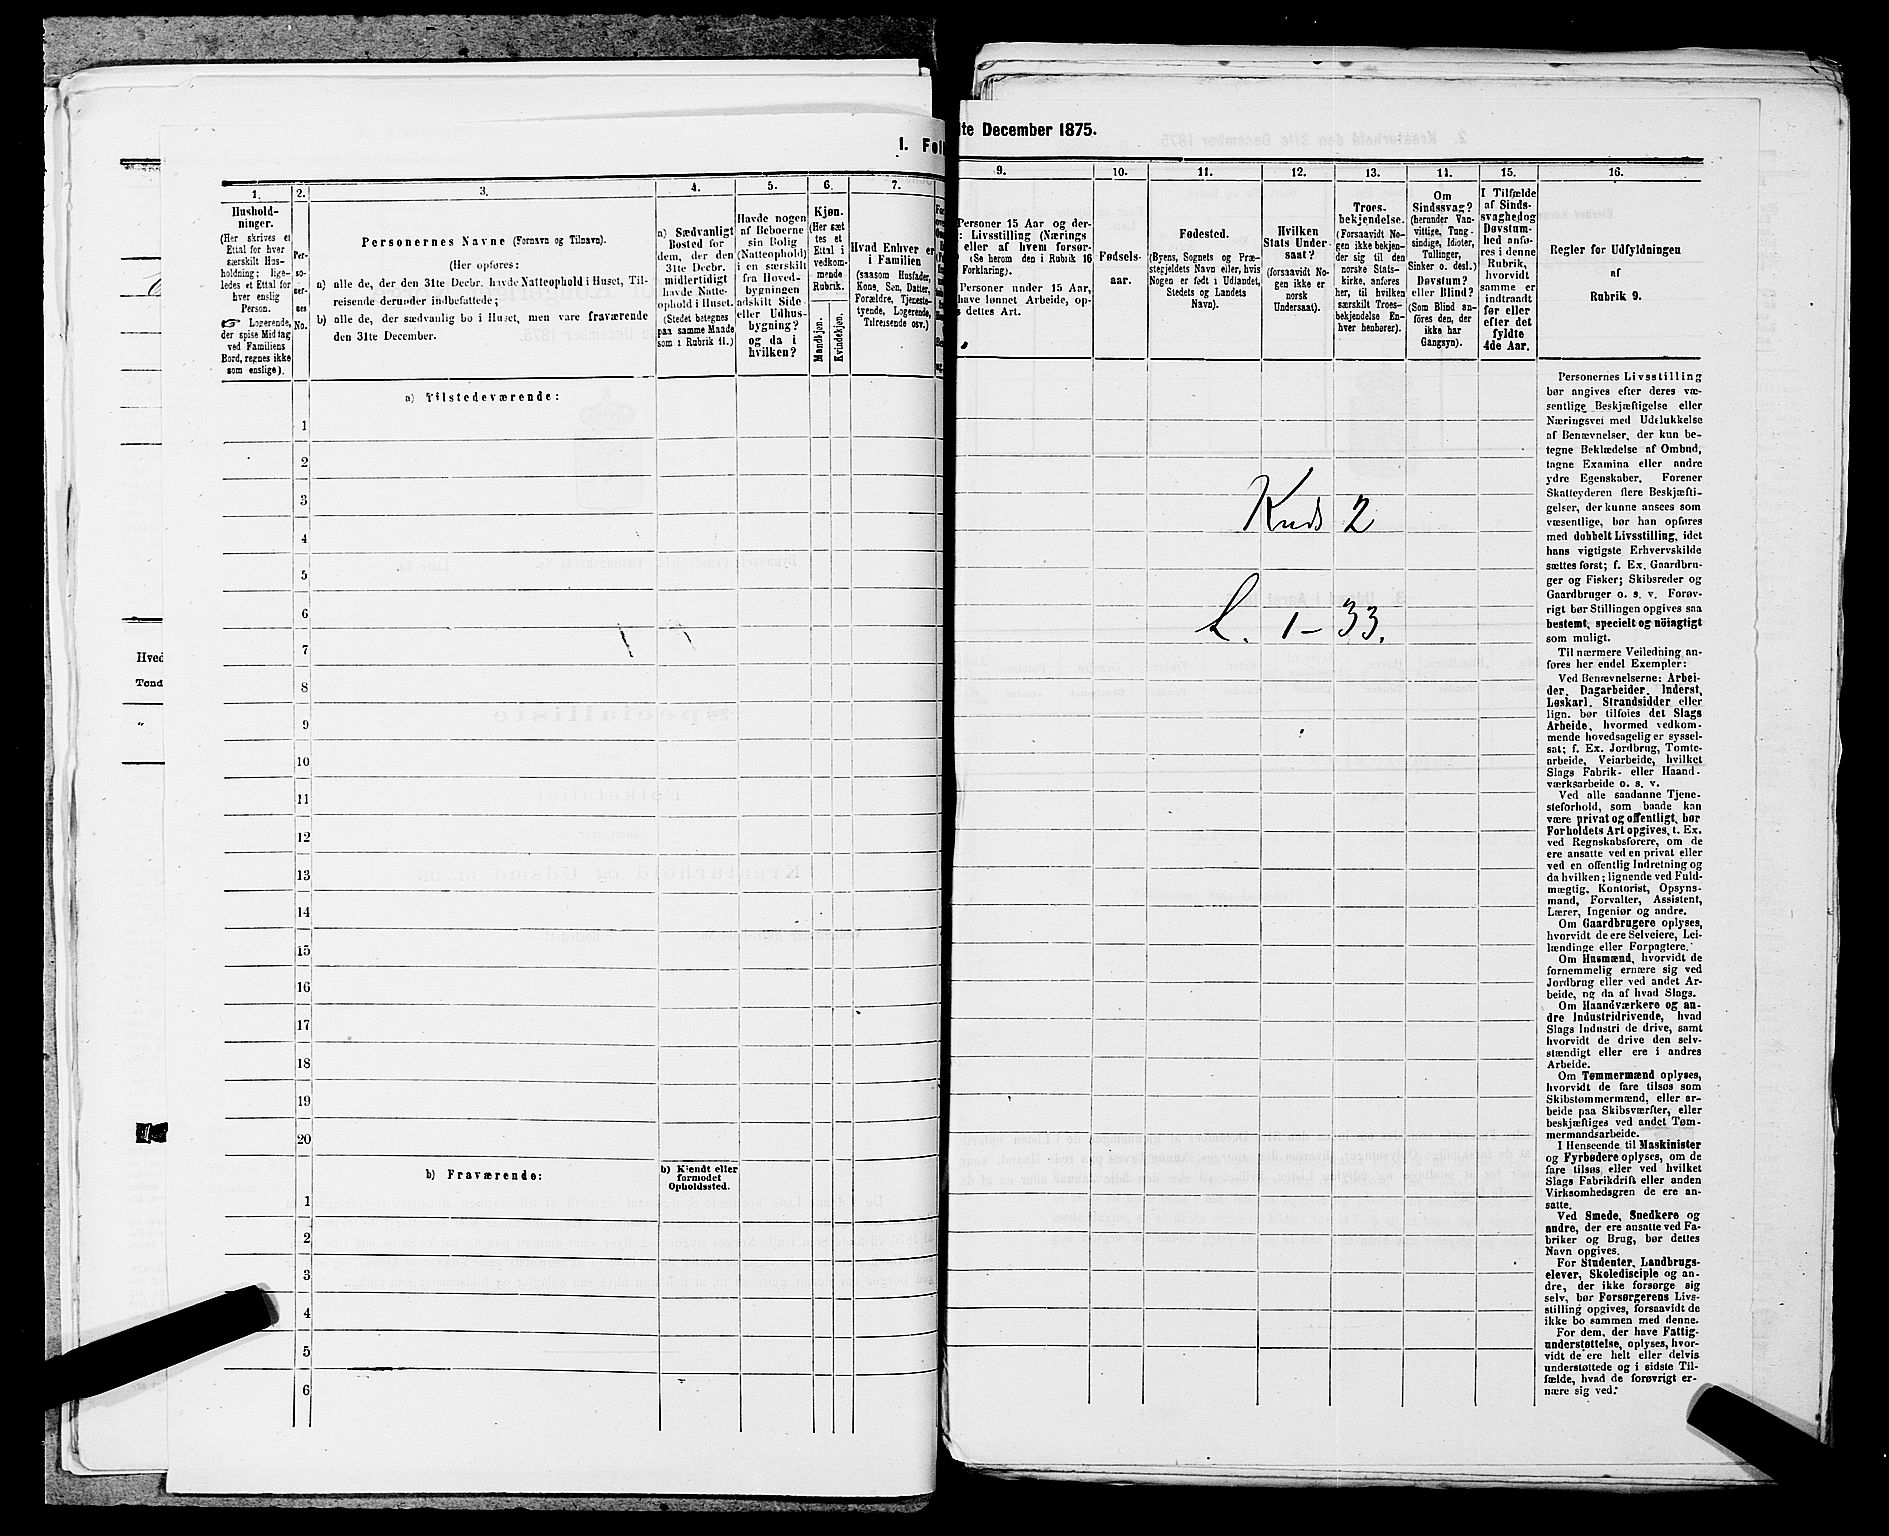 1. Fol
1.
2.
3.
4.
5.
6.
7.
Hushold-
ninger.
(Her skrives et
Ettal for hver
særskilt Hus-
holdning; lige-
ledes et Ettal for
hver enslig
Person.
☞ Logerende,
der spise Middag
ved Familiens
Bord, regnes ikke
som enslige).
Per-
so-
ner-
nes
No.
Personernes Navne (Fornavn og Tilnavn).
(Her opføres:
a) alle de, der den 31te Decbr. havde Natteophold i Huset, Til-
reisende derunder indbefattede;
b) alle de, der sædvanlig bo i Huset, men vare fraværende
den 31te December.
a) Sædvanligt
Bosted for
dem, der den
31te Decbr.
midlertidigt
havde Natte-
ophold i Huset.
(Stedet betegnes
paa samme Maade
som i Rubrik 11.)
Havde nogen
af Beboerne
sin Bolig
(Natteophold)
i en særskilt
fra Hoved-
bygningen
adskilt Side
eller Udhus-
bygning?
og da i
hvilken?
Kjøn.
(Her sæt
tes et
Ettal i
vedkom-
mende
Rubrik.
Mandkjøn.
Kvindekjøn.
Hvad Enhver er
i Familien
(saasom Husfader,
Kone, Søn, Datter,
Forældre, Tjeneste-
tyende, Logerende,
Tilreisende osv.)
a) Tilstedeværende:
1
2
3
4
5
6
7
8
9
10
11
12
13
14
15
16
17
18
19
20
b) Fraværende:
b) Kjendt eller
formodet
Opholdssted.
1
2
3
4
5
6
Hved
Tønd
"
1te December 1875.
9.
10.
11.
12.
13.
14.
15.
16.
Personer 15 Aar og der-
: Livsstilling (Nærings-
eller af hvem forsør-
(Se herom den i Rubrik 16
Forklaring).
Personer under 15 Aar,
have lønnet Arbeide, op-
s dettes Art.
Fødsels-
aar.
Fødested.
(Byens, Sognets og Præ-
stegjeldets Navn eller, hvis
Nogen er født i Udlandet,
Stedets og Landets
Navn).
Hvilken
Stats Under-
saat?
(forsaavidt No-
gen ikke er
norsk
Undersaat).
Troes-
bekjendelse.
(Forsaavidt No-
gen ikke bekjen-
der sig til den
norske Stats-
kirke, anføres
her, til hvilken
særskilt Troes-
bekjendelse En-
hver henhører).
Om
Sindssvag?
(herunder Van-
vittige, Tung-
sindige, Idioter,
Tullinger,
Sinker o. desl.)
Døvstum?
eller Blind?
(Som Blind an-
føres den, der
ikke har
Gangsyn).
I Tilfælde
af Sinds-
svaghed og
Døvstum-
hed anfø-
res i denne
Rubrik,
hvorvidt
samme er
indtraadt
før eller
efter det
fyldte
4de Aar.
Regler for Udfyldningen
af
Rubrik 9.
Kreds 2
L. 1-33.
Personernes Livsstilling
bør angives efter deres væ-
sentlige Beskjæftigelse eller
Næringsvei med Udelukkelse
af Benævnelser, der kun be-
tegne Beklædelse af Ombud,
tagne Examina eller andre
ydre Egenskaber. Forener
Skatteyderen flere Beskjæfti-
gelser, der kunne ansees som
væsentlige, bør han opføres
med dobbelt Livsstilling, idet
hans vigtigste Erhvervskilde
sættes først; f. Ex. Gaardbru-
ger og Fisker; Skibsreder og
Gaardbruger o. s. v. Forøv-
rigt bør Stillingen opgives saa
bestemt, specielt og nöiagtigt
som muligt.
Til nærmere Veiledning an-
føres her endel Exempler:
Ved Benævnelserne: Arbei-
der, Dagarbeider, Inderst,
Løskarl, Strandsidder eller
lign. bør tilføies det Slags
Arbeide, hvormed vedkom-
mende hovedsagelig er syssel-
sat; f. Ex. Jordbrug, Tomte-
arbeide, Veiarbeide, hvilket
Slags Fabrik- eller Haand-
værksarbeide o. s. v.
Ved alle saadanne Tjene-
steforhold, som baade kan
være privat og offentligt, bør
Forholdets Art opgives, t. Ex.
ved Regnskabsførere, om de
ere ansatte ved en privat eller
ved en offentlig Indretning og
da hvilken; lignende ved Fuld-
mægtig, Kontorist, Opsyns-
mand, Forvalter, Assistent,
Lærer, Ingeniør og andre.
Om Gaardbrugere oplyses,
hvorvidt de ere Selveiere, Lei-
lændinge eller Forpagtere.
Om Husmænd, hvorvidt de
fornemmelig ernære sig ved
Jordbrug eller ved andet Ar-
beide, og da af hvad Slags.
Om Haandværkere og an-
dre Industridrivende, hvad
Slags Industri de drive, samt
hvorvidt de drive den selv-
stændigt eller ere i andres
Arbeide.
Om Tømmermænd oplyses,
hvorvidt de fare tilsøs som
Skibstømmermænd, eller ar-
beide paa Skibsværfter, eller
beskjæftiges ved andet Tøm-
mermandsarbeide.
I Henseende til Maskinister
og Fyrbødere oplyses, om de
fare tilsøs, eller ved hvilket
Slags Fabrikdrift eller anden
Virksomhedsgren de ere an-
satte.
Ved Smede, Snedkere og
andre, der ere ansatte ved Fa-
briker og Brug, bør dettes
Navn opgives.
For Studenter, Landbrugs-
elever, Skoledisciple og an-
dre, der ikke forsørge sig
selv, bør Forsørgerens Livs-
stilling opgives, forsaavidt de
ikke bo sammen med denne.
For dem, der have Fattig-
understøttelse, oplyses, hvor-
vidt de ere helt eller delvis
understøttede og i sidste Til-
fælde, hvad de forøvrigt er-
nære sig ved.